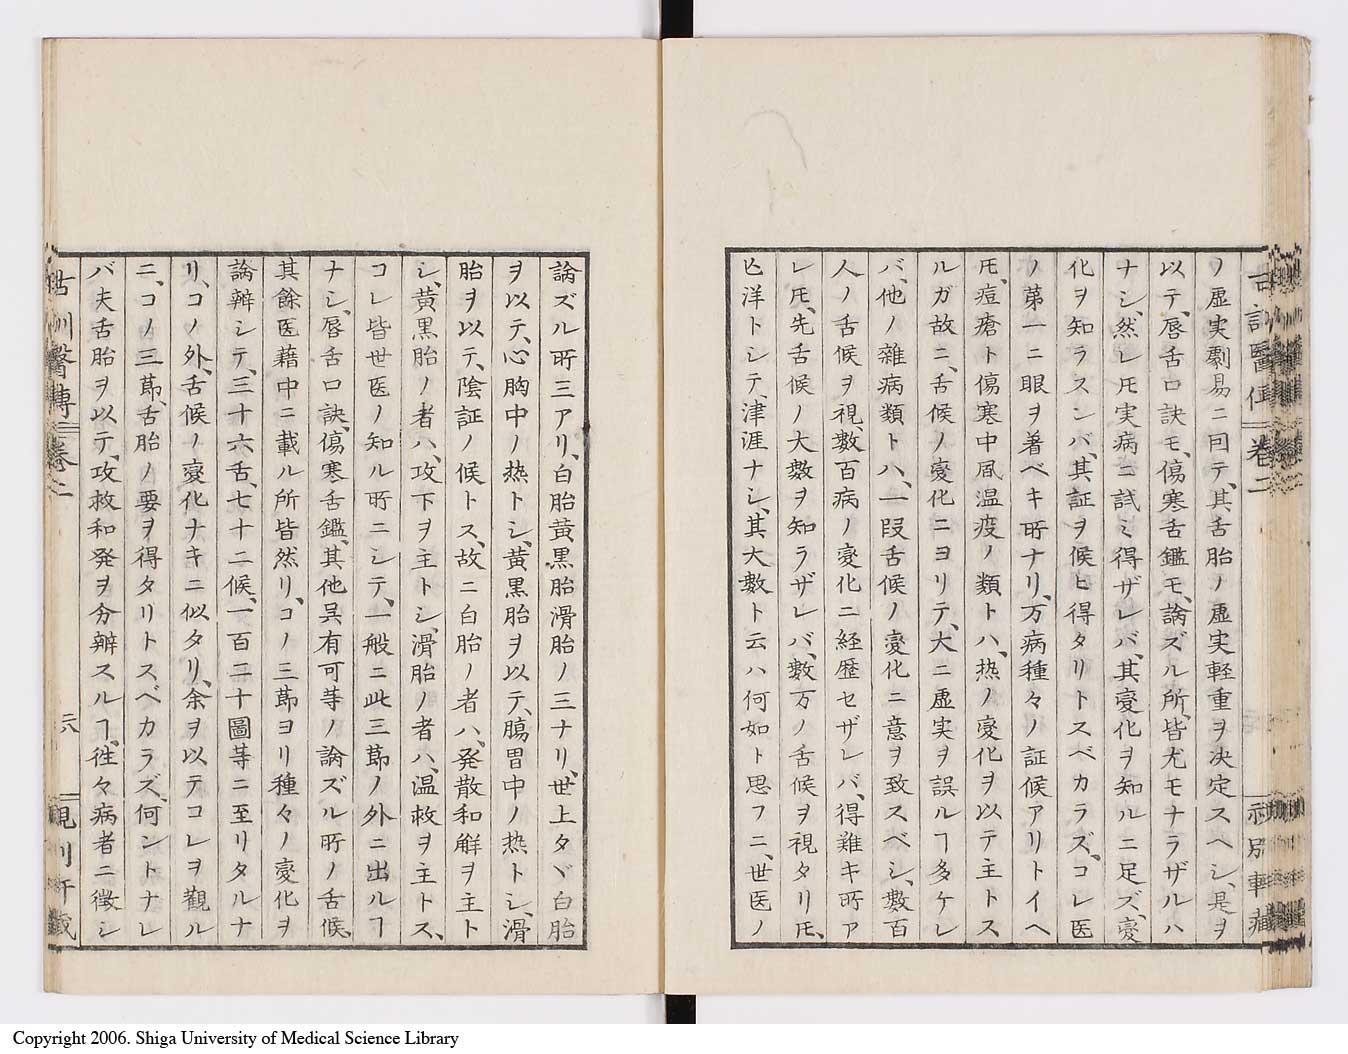 古訓醫傳 卷二
ノ虚実劇易ニ回テ、其舌胎ノ虚実軽重ヲ決定スヘシ、是ヲ
以テ、唇舌口訣モ、傷寒舌鑑モ、論ズル所、皆尤モナラザルハ
ナシ、然レ𪜈実病ニ試ミ得ザレバ、其変化ヲ知ルニ足ズ、変
化ヲ知ラスンバ、其証ヲ候ヒ得タリトスベカラズ、コレ医
ノ第一ニ眼ヲ着ベキ所ナリ、万病種々ノ証候アリトイヘ
𪜈、痘瘡ト傷寒中風温疫ノ類トハ、熱ノ変化ヲ以テ主トス
ルガ故ニ、舌候ノ変化ニヨリテ、大ニ虚実ヲ誤ルヿ多ケレ
バ、他ノ雑病類トハ、一段舌候ノ変化ニ意ヲ致スベシ、數百
人ノ舌候ヲ視、數百病ノ変化ニ経歴セザレバ、得難キ所ア
レ𪜈、先舌候ノ大數ヲ知ラザレバ、數万ノ舌候ヲ視タリ𪜈、
㔫洋トシテ、津涯ナシ、其大數ト云ハ何如ト思フニ、世医ノ
論ズル所三アリ、白胎黄黒胎滑胎ノ三ナリ、世上タヾ白胎
ヲ以テ、心胸中ノ热トシ、黄黒胎ヲ以テ、腸胃中ノ热トシ、滑
胎ヲ以テ、陰証ノ候トス、故ニ白胎ノ者ハ、発散和解ヲ主ト
シ、黄黒胎ノ者ハ、攻下ヲ主トシ、滑胎ノ者ハ、温救ヲ主トス、
コレ皆世医ノ知ル所ニシテ、一般ニ此三節ノ外ニ出ルヿ
ナシ、唇舌口訣、傷寒舌鑑、其他呉有可等ノ論ズル所ノ舌候、
其餘医藉中ニ載ル所皆然リ、コノ三節ヨリ種々ノ変化ヲ
論辨シテ、三十六舌、七十二候、一百二十圖等ニ至リタルナ
リ、コノ外、舌候ノ変化ナキニ似タリ、余ヲ以テコレヲ觀ル
ニ、コノ三節、舌胎ノ要ヲ得タリトスベカラズ、何ントナレ
バ夫舌胎ヲ以テ、攻救和発ヲ分辨スルヿ、徃々病者ニ徴シ
古訓醫傳 卷二
Copyright 2006. Shiga University of Medical Science Library